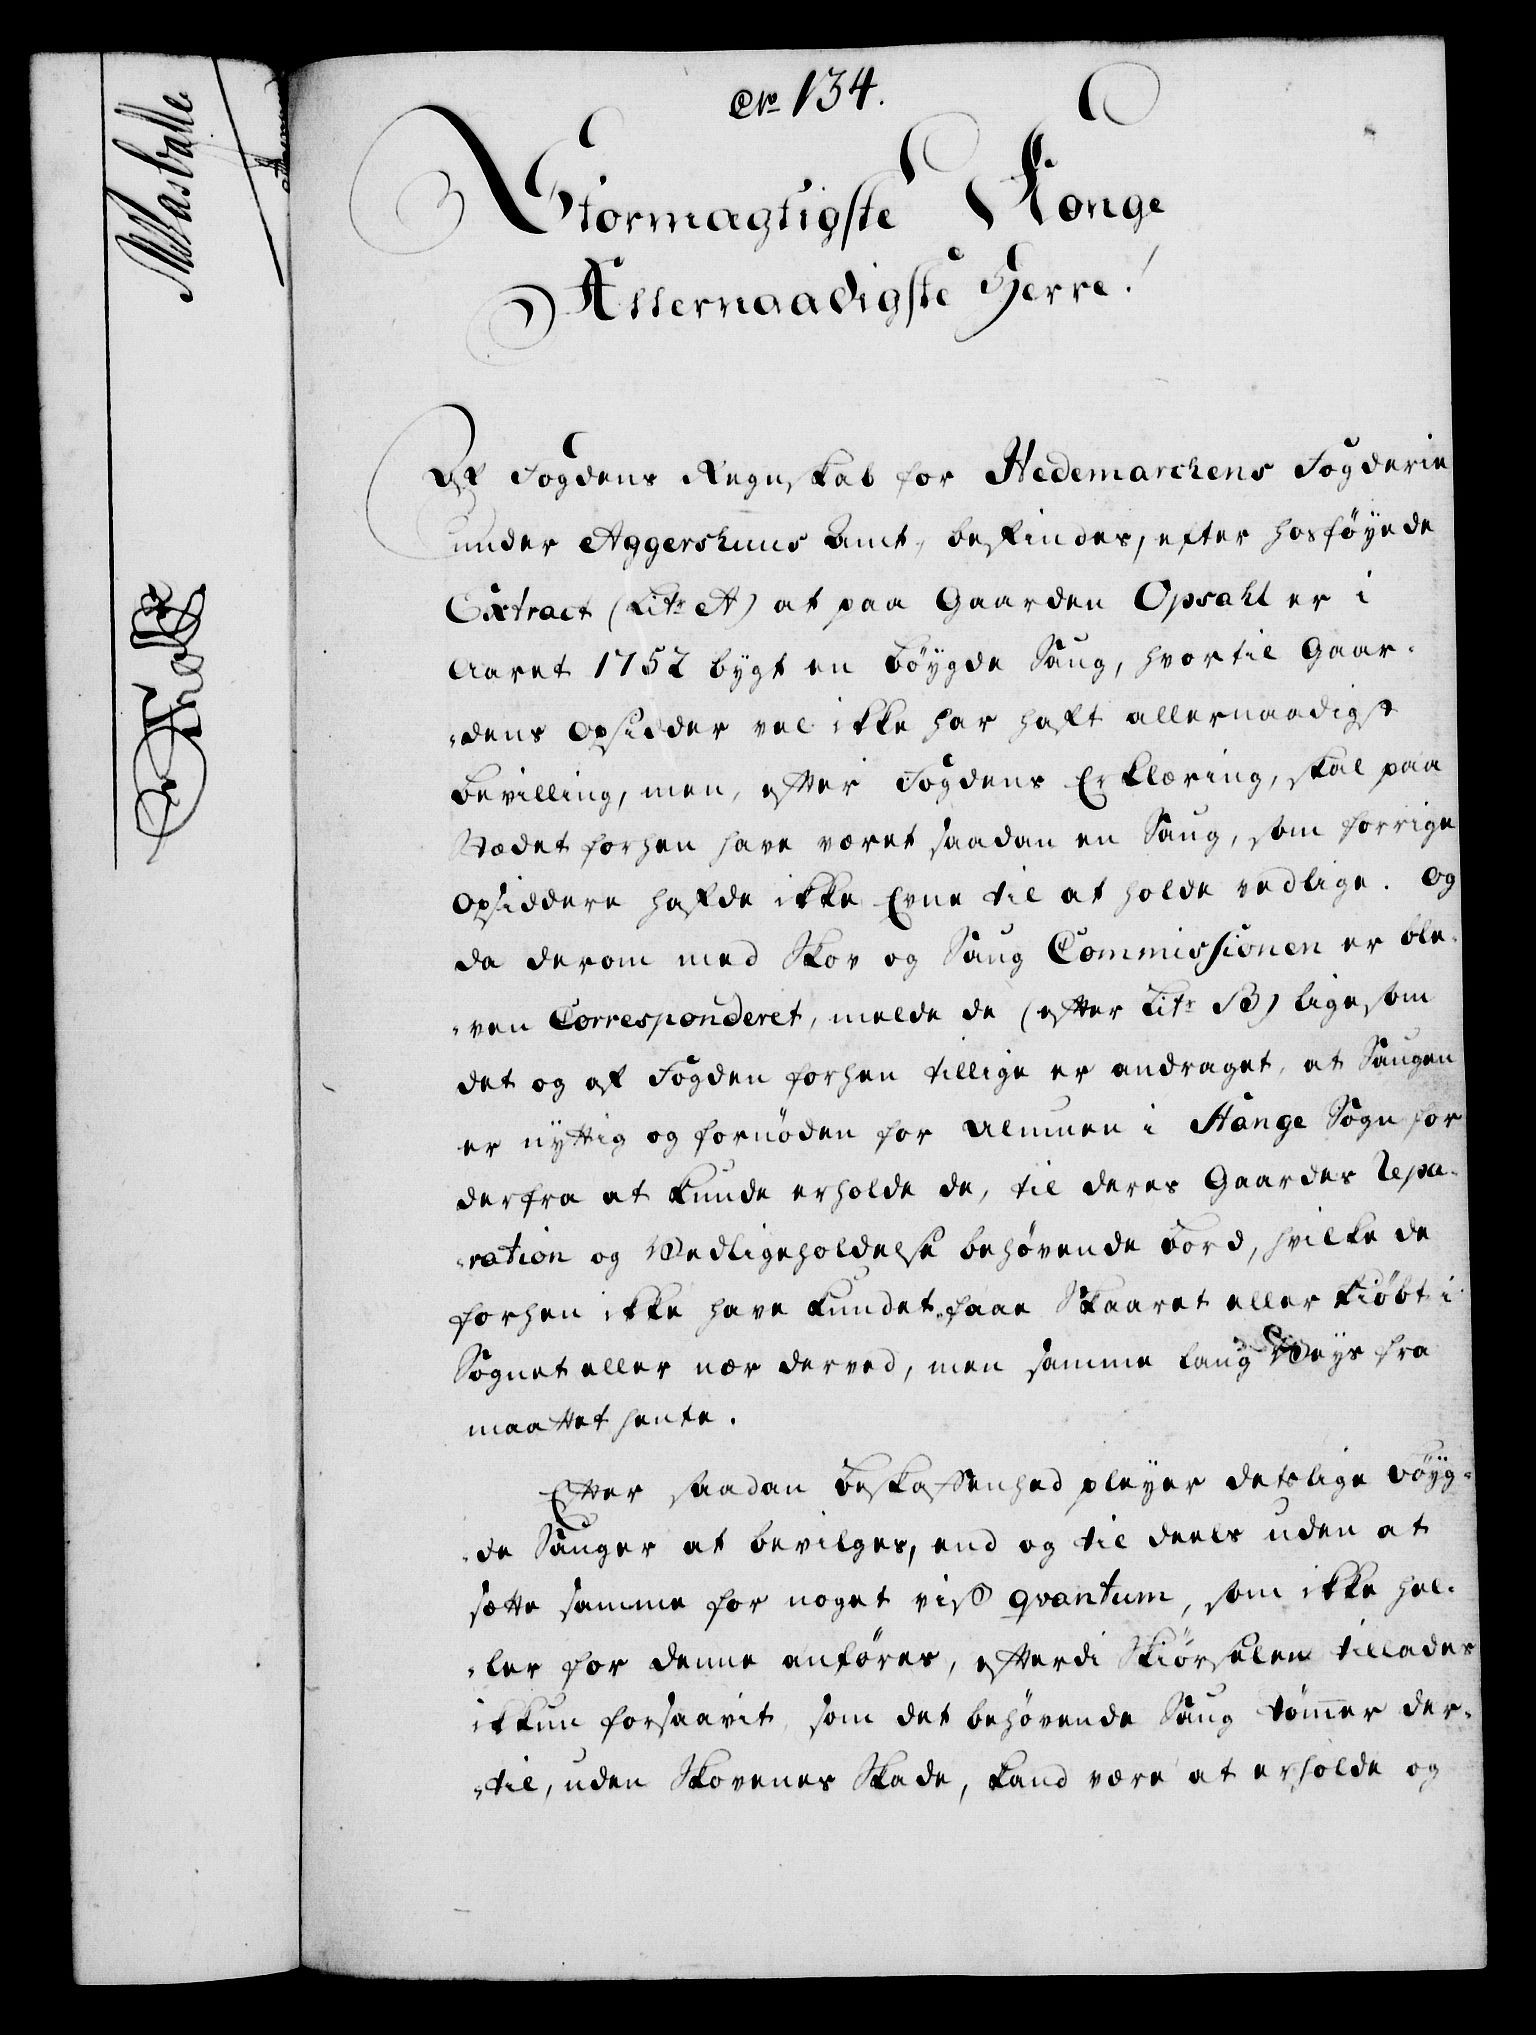 No 134.
Stormægtigste Konge
Allernaadigste Herre!
Af Fogdens Regnskab for Hedemarckens Fogderie
under Aggershuus Amt, befindes, efter hosföyede
Extract (Litr A) at paa Gaarden Opsahl er i
Aaret 1752 bygt en Böygde Saug, hvortil Gaar-
-dens Opsidder vel ikke har haft allernaadigst
Bevilling, men, efter Fogdens Erklæring, skal paa
Stædet forhen have været saadan en Saug, som forrige
Opsiddere hafde ikke Evne til at holde vedlige. Og
da derom med Skov og Saug Commissionen er ble-
-ven Corresponderet, melde de (efter Litr B) ligesom
det og af Fogden forhen tillige er andraget, at Saugen
er nyttig og fornöden for Almuen i Stange Sogn for
derfra at kunde erholde de, til deres Gaardes Repa-
-ration og Vedligeholdelse behøvende Bord, hvilke de
forhen ikke have kundet faae Skaaret eller kiöbt i
Sognet eller nær derved, men samme lang Veys fra
maattet hente.
Efter saadan Beskaffenhed pleyer detslige Böyg-
-de Sauger at bevilges, end og til deels uden at
sætte samme for noget vist qvantum, som ikke hel-
-ler for denne anföres, efterdi Skiörselen tillades
ikkun forsaavit, som det behøvende Saug Tömer der-
-til, uden Skovenes Skade, kand være at erholde og